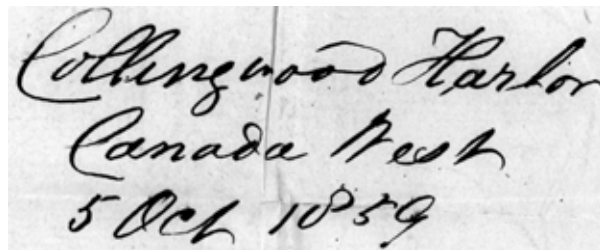 Collingwood Harbor
Canada West
5 Oct 1859